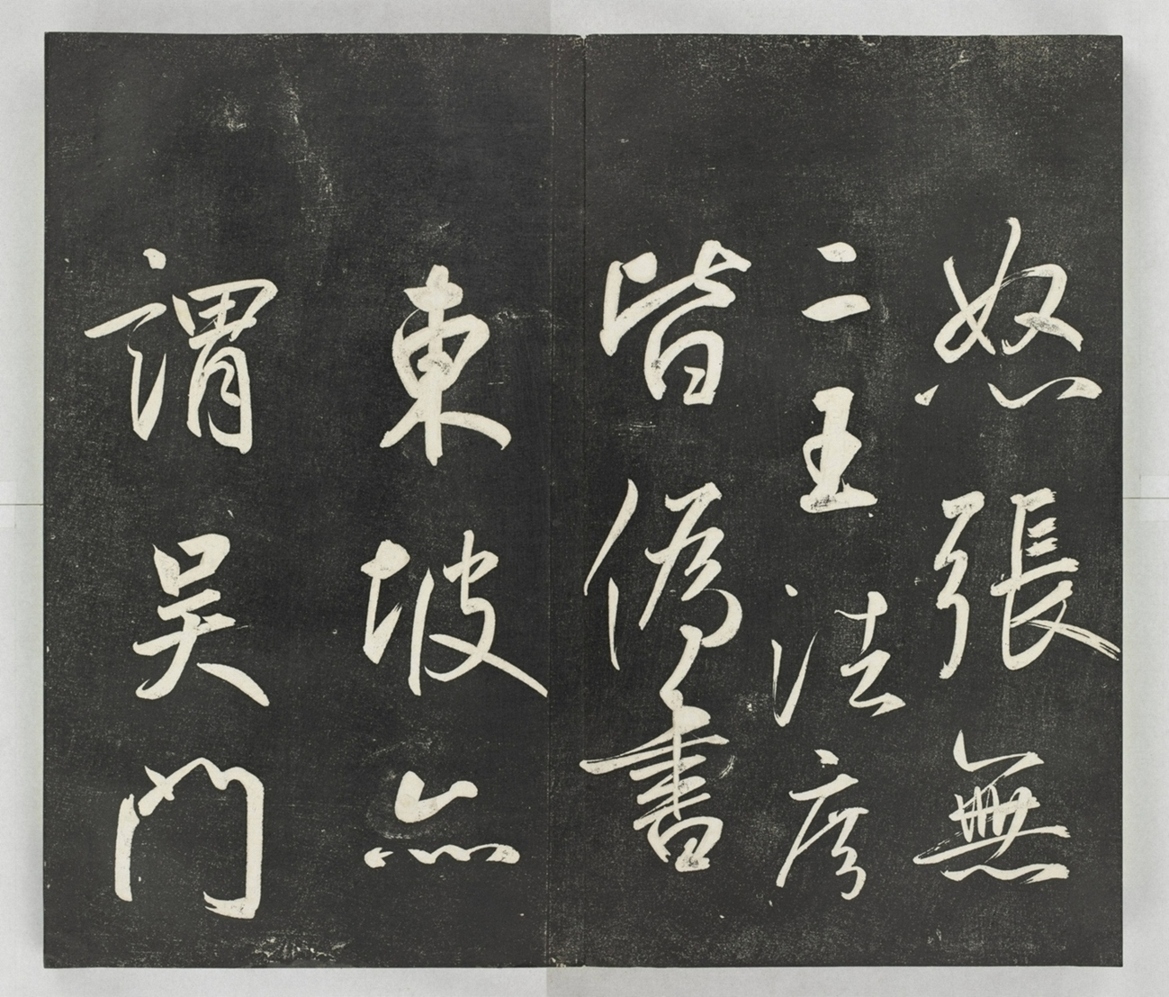 怒張無
二王法度
皆偽書
東坡亦
謂吴門